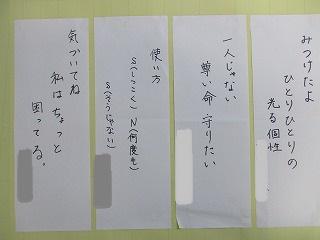 みつけたよ
ひとりひとりの
光る個性
一人じゃない
尊い命 守りたい
使い方
S(しつこく) N(何度も)
S(そうじゃない)
気づいてね
私はちょっと
困ってる。